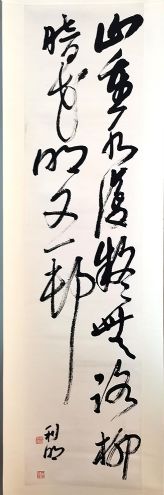 山重水復疑無路柳
暗花明又一邨
利明